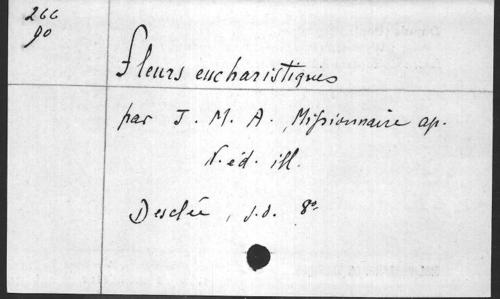 266
90
Fleurs eucharistiques
par J. M. A. Missionnaire ap.
N. éd. ill.
Desclée, s.d. 8º